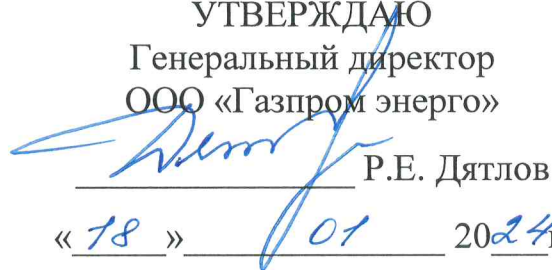 УТВЕРЖДАЮ
Генеральный директор
ООО «Газпром энерго»
Р.Е. Дятлов
«18» 01 2024г